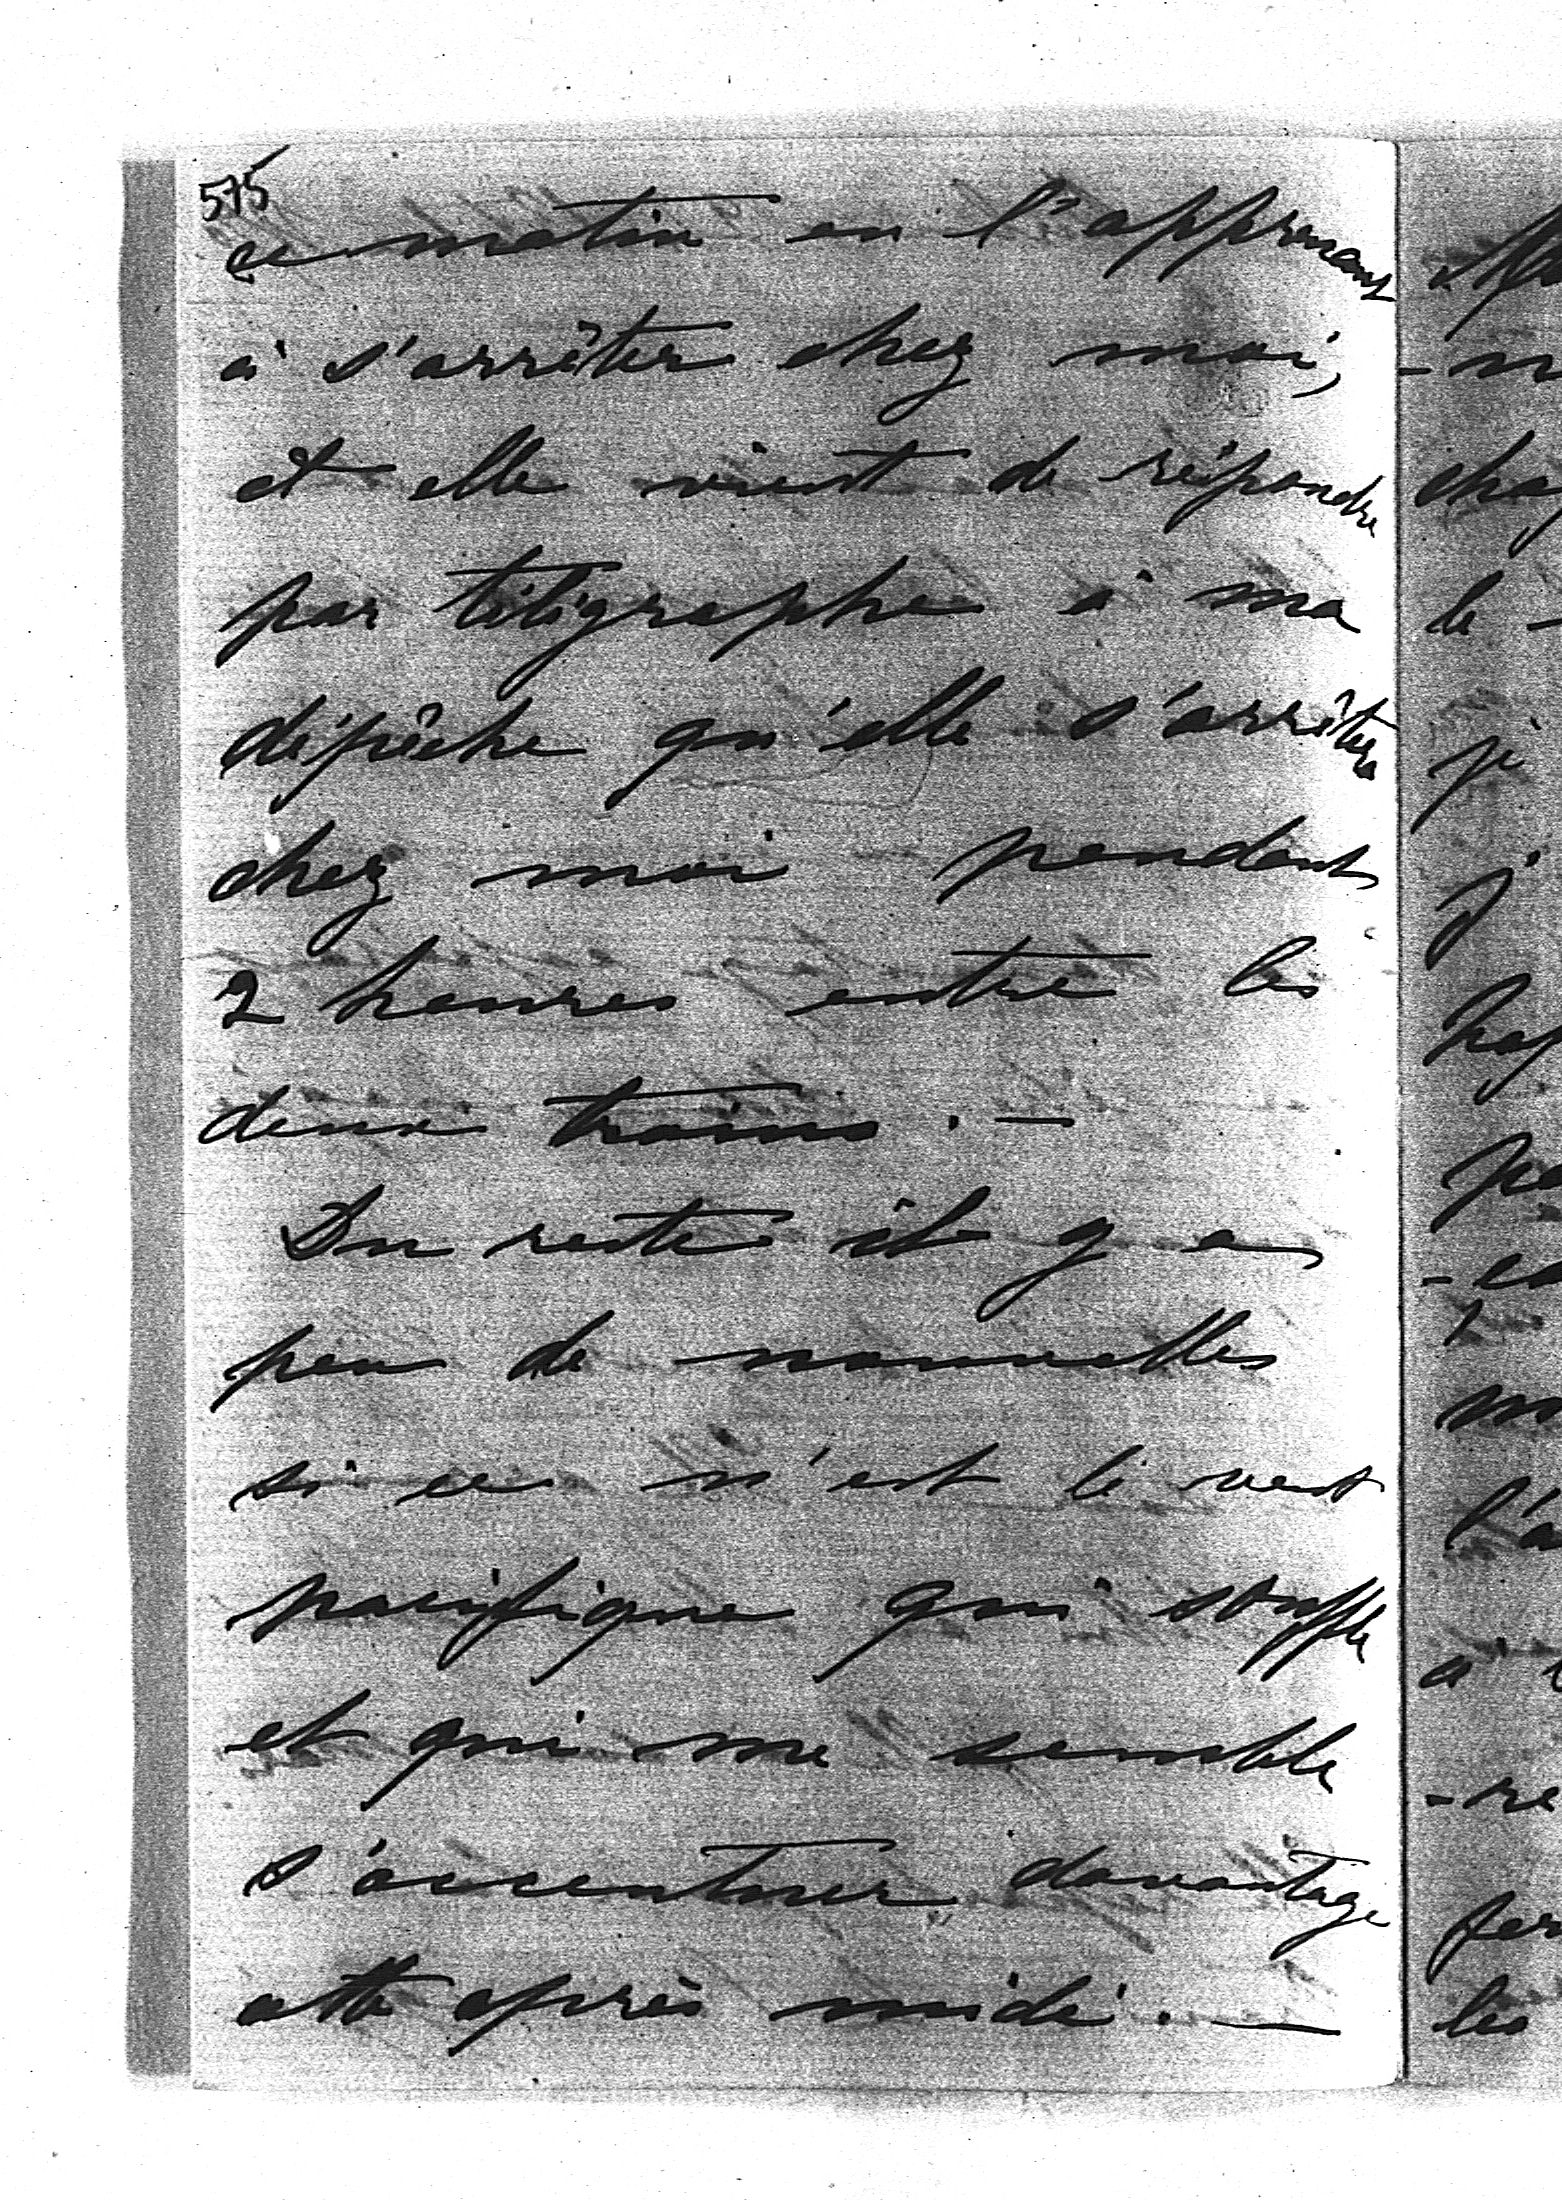 575
ce matin en l'apprenant
à s'arrêter chez moi,
et elle vient de répondre
par télégraphe à ma
dépêche qu'elle s'arrêtera
chez moi pendant
2 heures entre les
deux trains. —
Du reste il y a
peu de nouvelles
si ce n'est le vent
pacifique qui souffle
et qui me semble
s'accentuer davantage
cette après midi. —